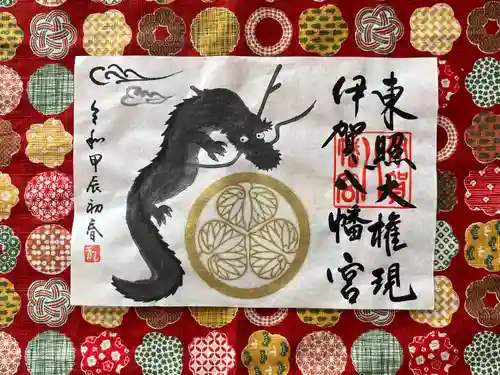 東照大権現
伊賀八幡宮
令和甲辰初春